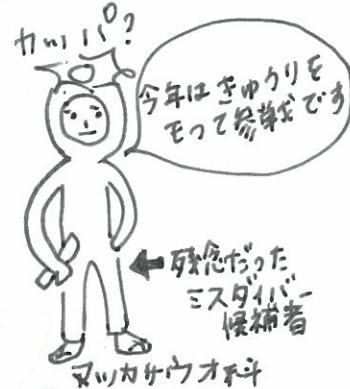 カッパ?
今年はきゅうりを
もって参戦です
残念だった
ミスダイバー
候補者